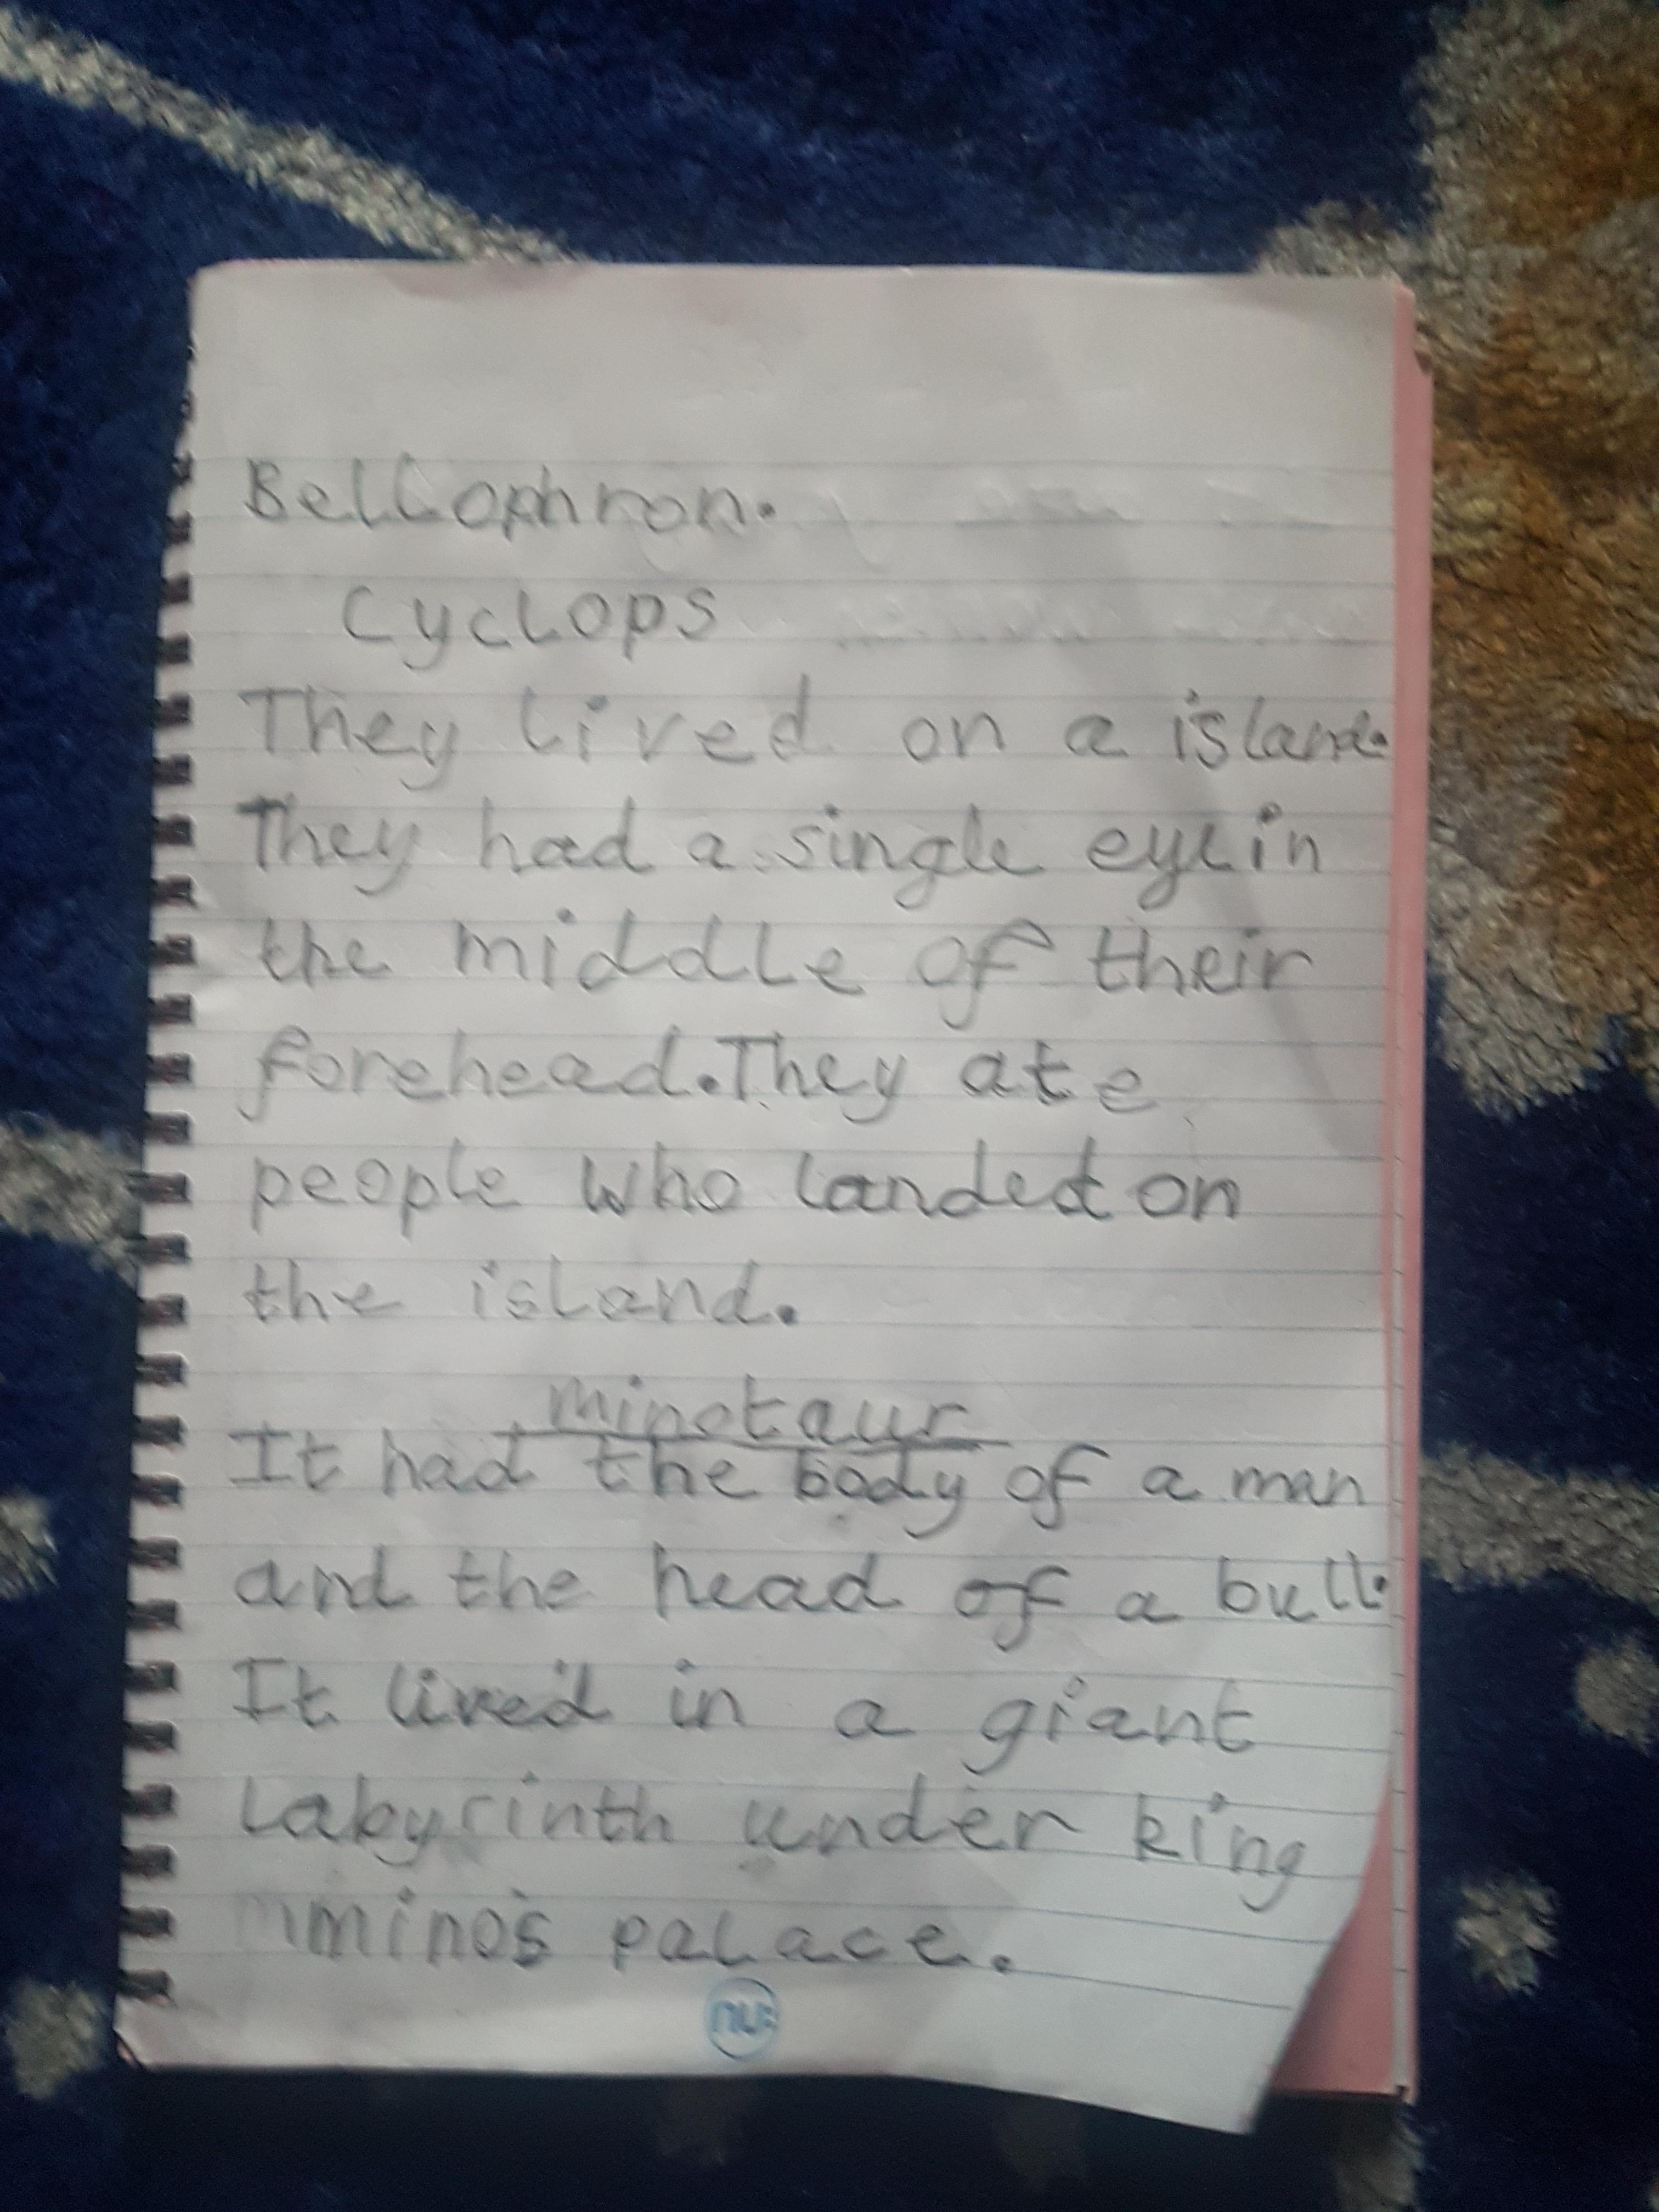 Bellophron.
Cyclops
They lived on a island.
They had a single eye in
the middle of their
forehead. They ate
people who landed on
the island.
minotaur
It had the body of a man
and the head of a bull.
It lived in a giant
Labyrinth under king
minos palace.
nu: